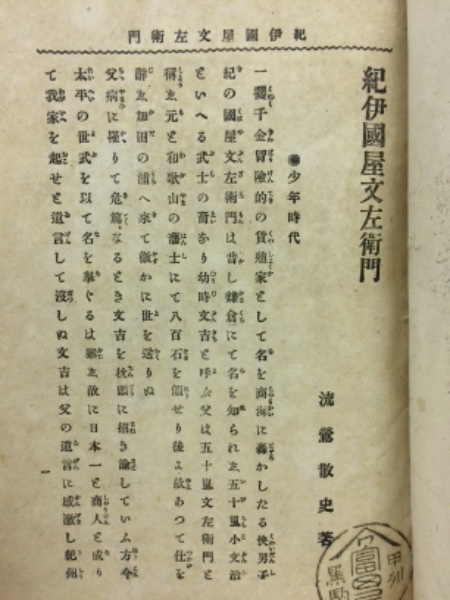 紀伊國屋文左衛門
紀伊國屋文左衛門
流鶯散史著
少年時代
一攫千金冒險的の貨殖家として名を商海に轟かしたる俠男子
紀の國屋文左衛門は昔し鎌倉にて名を知られゑ五十嵐小文治
といへる武士の裔あり幼時文吉と呼ふ父は五十嵐文左衛門と
稱ゑ元と和歌山の藩士にて八百石を領せり後ち故あつて仕を
辭ゑ加田の浦へ來て微かに世を送りぬ
父病に罹りて危篤なるとき文吉を枕頭に招き諭していふ方今
太平の世武を以て名を擧ぐるは難ゑ故に日本一と商人と成り
て我家を起せと遺言して沒しぬ文吉は父の遺言に感激し紀州
一
甲州
富
黑駒